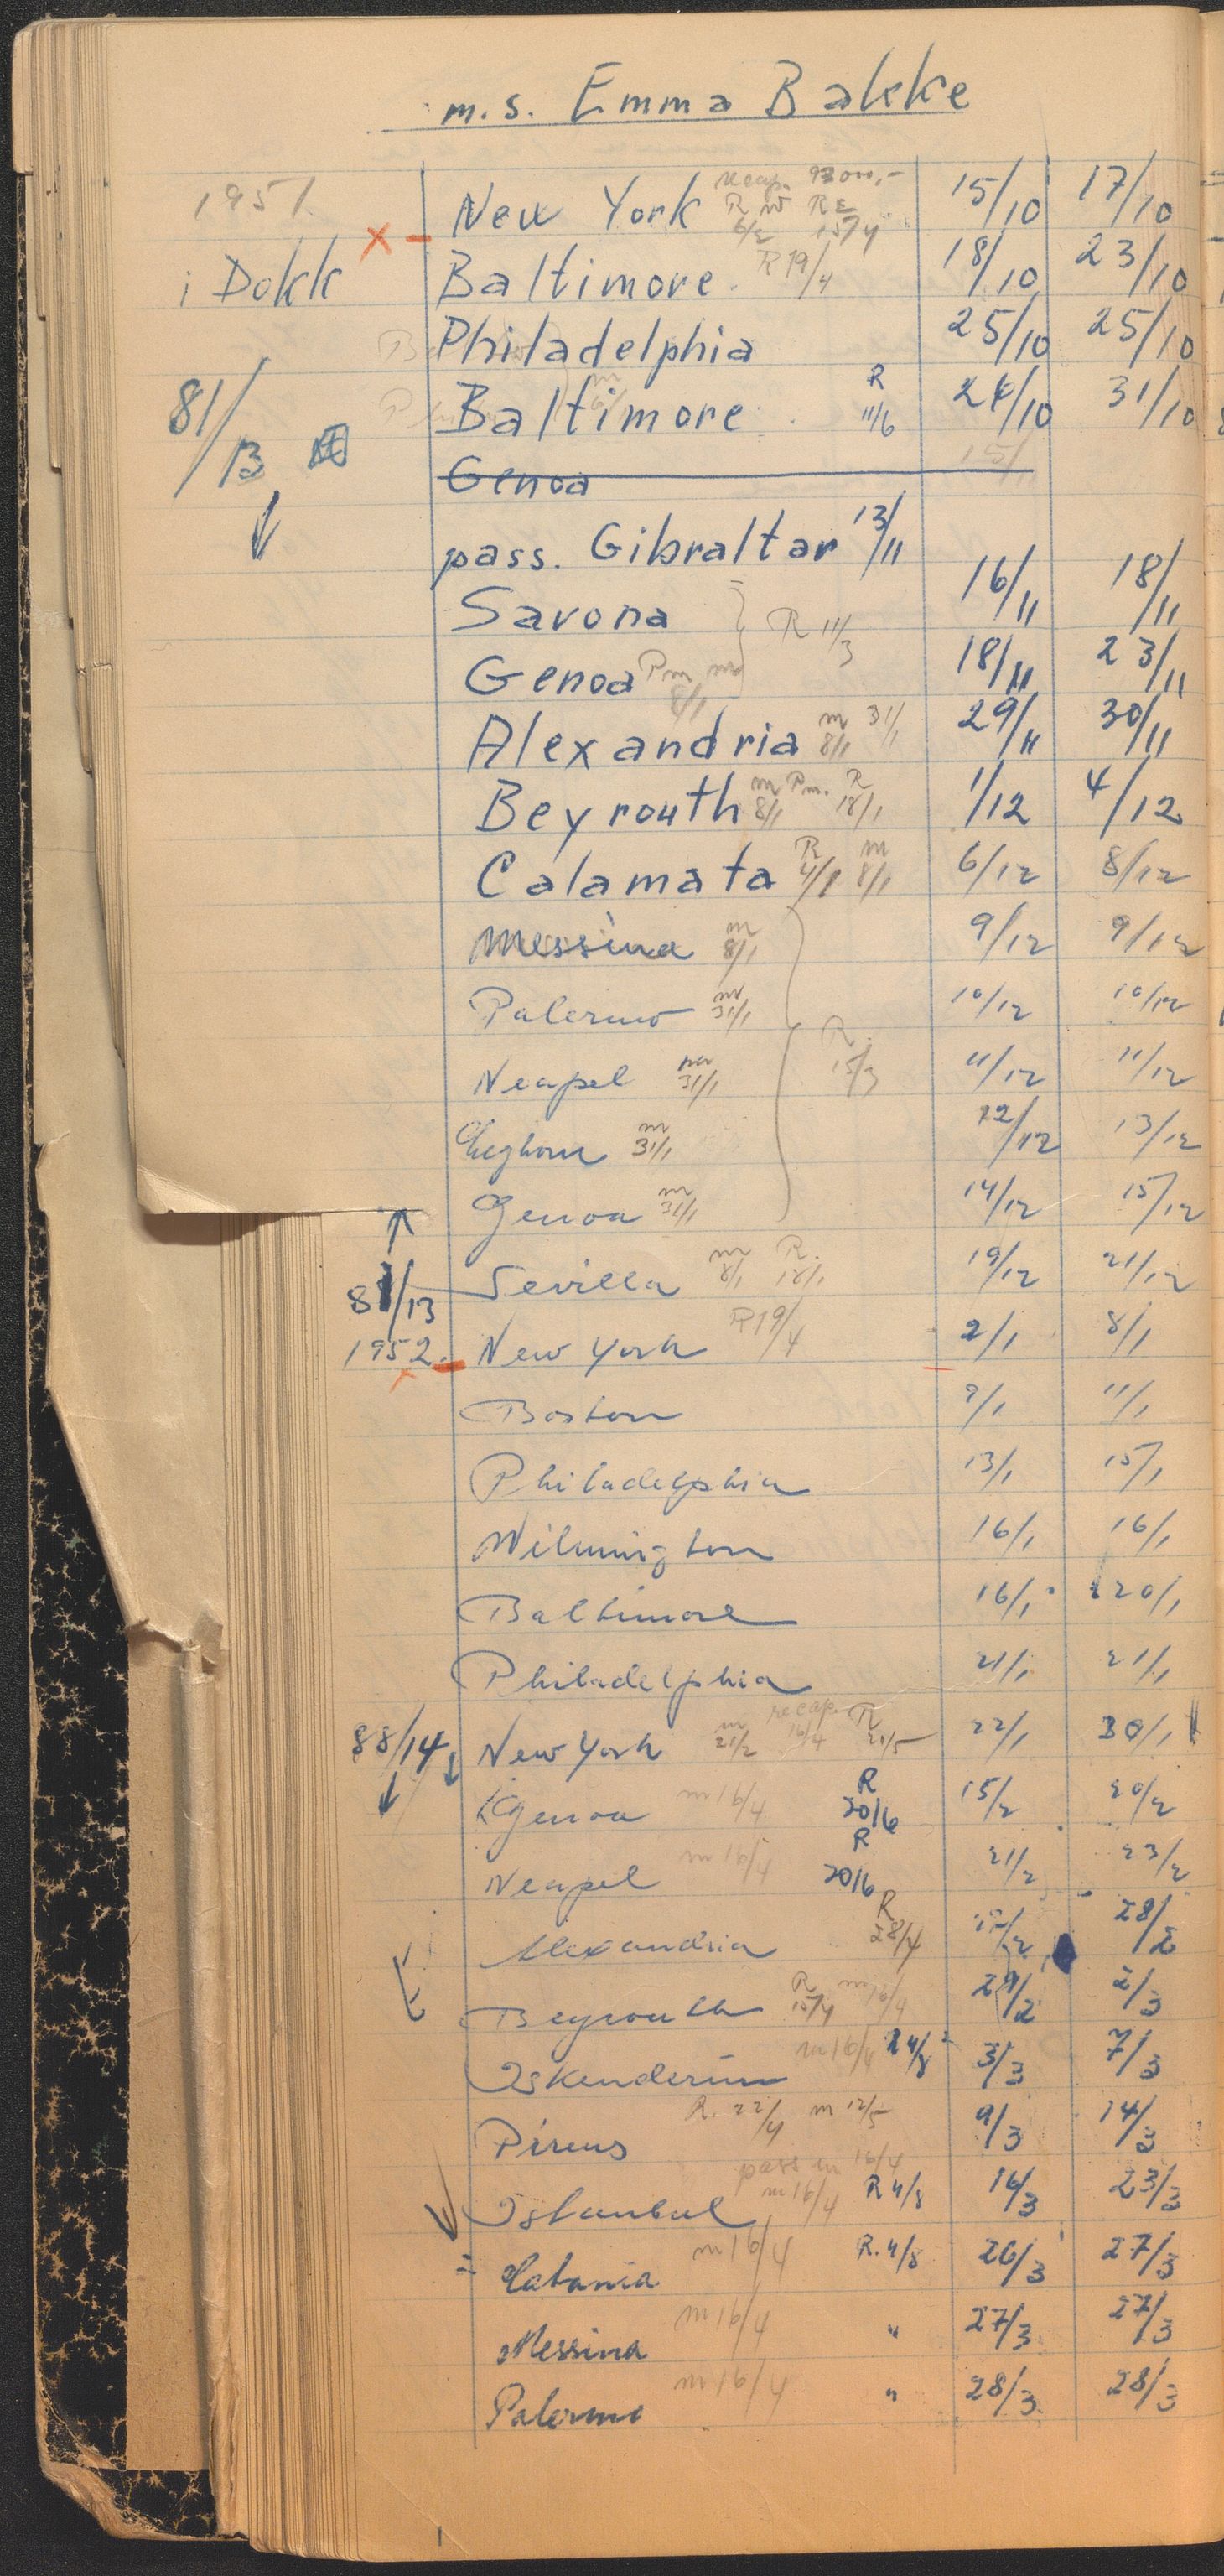 m.s. Emma Bakke
1951. New York recap. R m R 6/2 15/4 15/10 17/10
x - i Dokk Baltimore. R 19/4 18/10 23/10
Philadelphia 25/10 25/10
81/13 Baltimore R 11/6 31/10
Genoa 15/
pass. Gibraltar 13/11
Savona } R 11/3 16/11 18/11
Genoa Pm m 8/1 18/11 23/11
Alexandria m 8/1 31/1 29/11 30/11
Beyrouth m 8/1 Pm. R 18/1 1/12 4/12
Calamata R 4/1 m 8/1 6/12 8/12
Messina m 8/1 9/12 9/12
Palermo m 31/1 10/12 10/12
Neapel m 31/1 R. 15/3 11/12 11/12
Leghorn m 31/1 12/12 13/12
Genoa m 31/1 14/12 15/12
81/13 Sevilla m 8/1 R. 18/1 19/12 21/12
1952. New York R 19/4 2/1 8/1
x Boston 9/1 11/1
Philadelphia 13/1 15/1
Wilmington 16/1 16/1
Baltimore 16/1 20/1
Philadelphia 21/1 21/1
88/14 New York m 21/2 recap. 16/4 R 21/5 22/1 30/1
Genoa m 16/4 R 20/6 15/2 20/2
Neapel m 16/4 R 20/6 21/2 23/2
Alexandria R 28/4 28/2
Beyrouth R 15/4 m 16/4 29/2 2/3
Iskenderun m 16/4 R 4/8 3/3 7/3
Pireus R. 22/4 m 12/5 9/3 14/3
pass m 16/4
Istanbul m 16/4 R 4/8 16/3 23/3
= Catania m 16/4 R. 4/8 26/3 27/3
Messina m 16/4 " 27/3 27/3
Palermo m 16/4 " 28/3 28/3